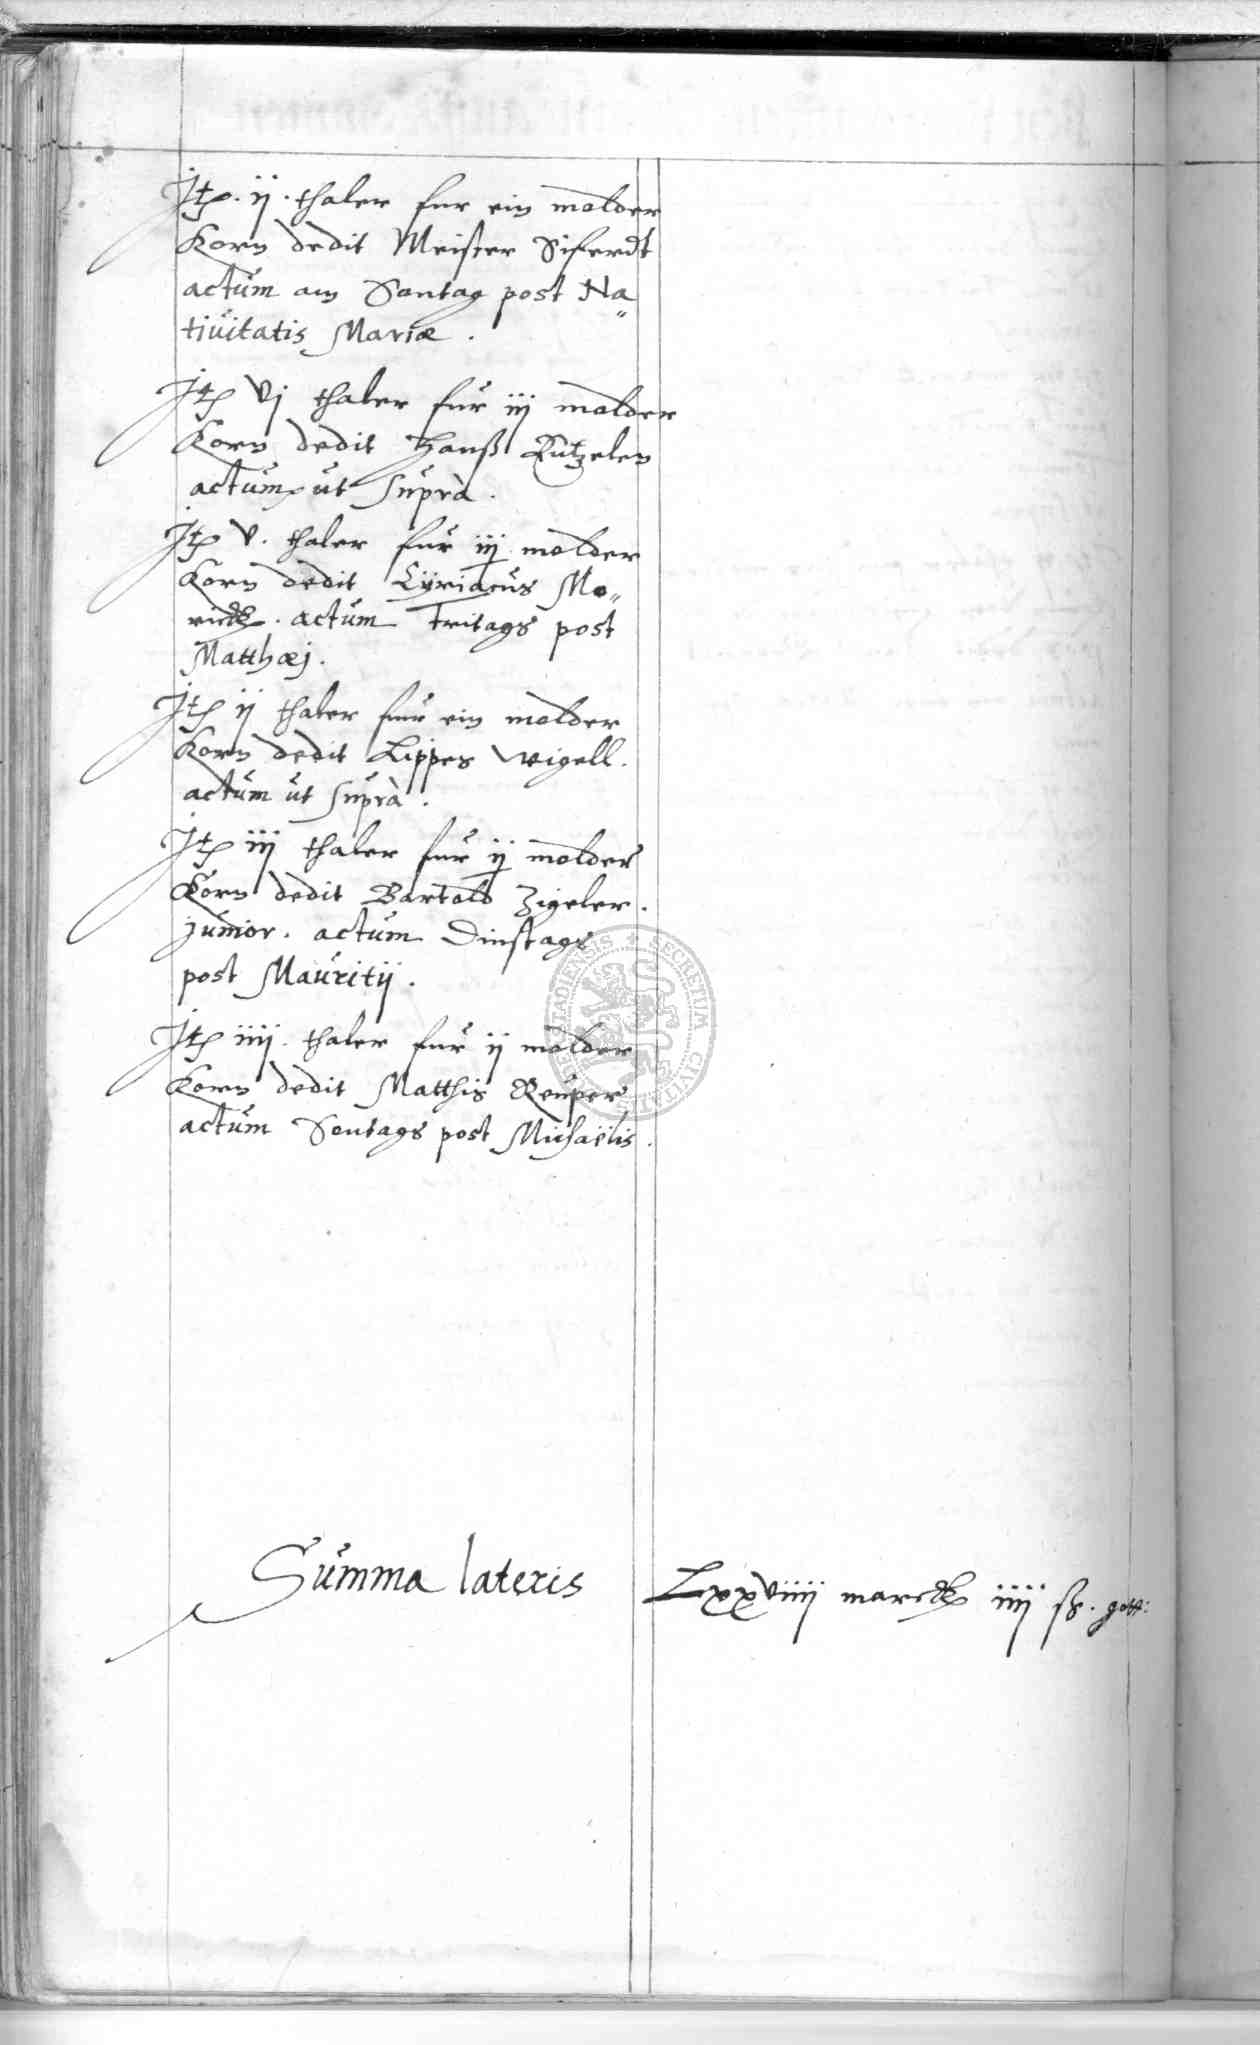 Jtem. ij. thaler fur ein molder
Korn dedit Meister Siferdt
actum am Sontag post Na„
tiuitatis Mariæ.
Jtem vj thaler fur iij molder
Korn dedit Hanß Kutzelen
actum ut suprà.
Jtem v. thaler fur iij molder
Korn dedit Cÿriacus Mo„
rick. actum Fritags post
Matthæj.
Jtem ij thaler fur ein molder
Korn dedit Lippes Wigell.
actum ut suprà.
Jtem iij thaler fur ij molder
Korn dedit Bartold Zigeler.
junior. actum Dinstags
post Mauritij.
Jtem iiij. thaler fur ij molder
Korn dedit Matthis Reuper
actum Sontags post Michaëlis.
Summa lateris Lxxviiij marck iiij ß. gott:
SECRETUM CIVITATIS